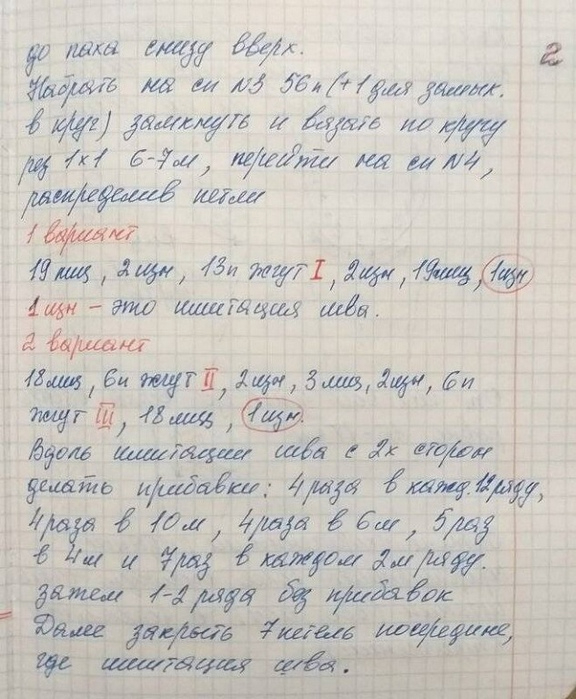 2
до паха снизу вверх.
Набрать на сп N3 56п (+1 для замык.
в круг) замкнуть и вязать по кругу
рез 1х1 6-7м, перейти на сп N4,
распределив петли
1 вариант
19 лиц, 2изн, 13п жгут I, 2изн, 19лиц, 1изн
1изн – это имитация шва.
2 вариант
18лиц, 6п жгут II, 2изн, 3лиц, 2изн, 6п
жгут III, 18лиц, 1изн.
Вдоль имитации шва с 2х сторон
делать прибавки: 4раза в кажд. 12ряду,
4раза в 10м, 4раза в 6м, 5раз
в 4м и 7раз в каждом 2м ряду.
затем 1-2 ряда без прибавок
Далее закрыть 7петель посередине,
где имитация шва.